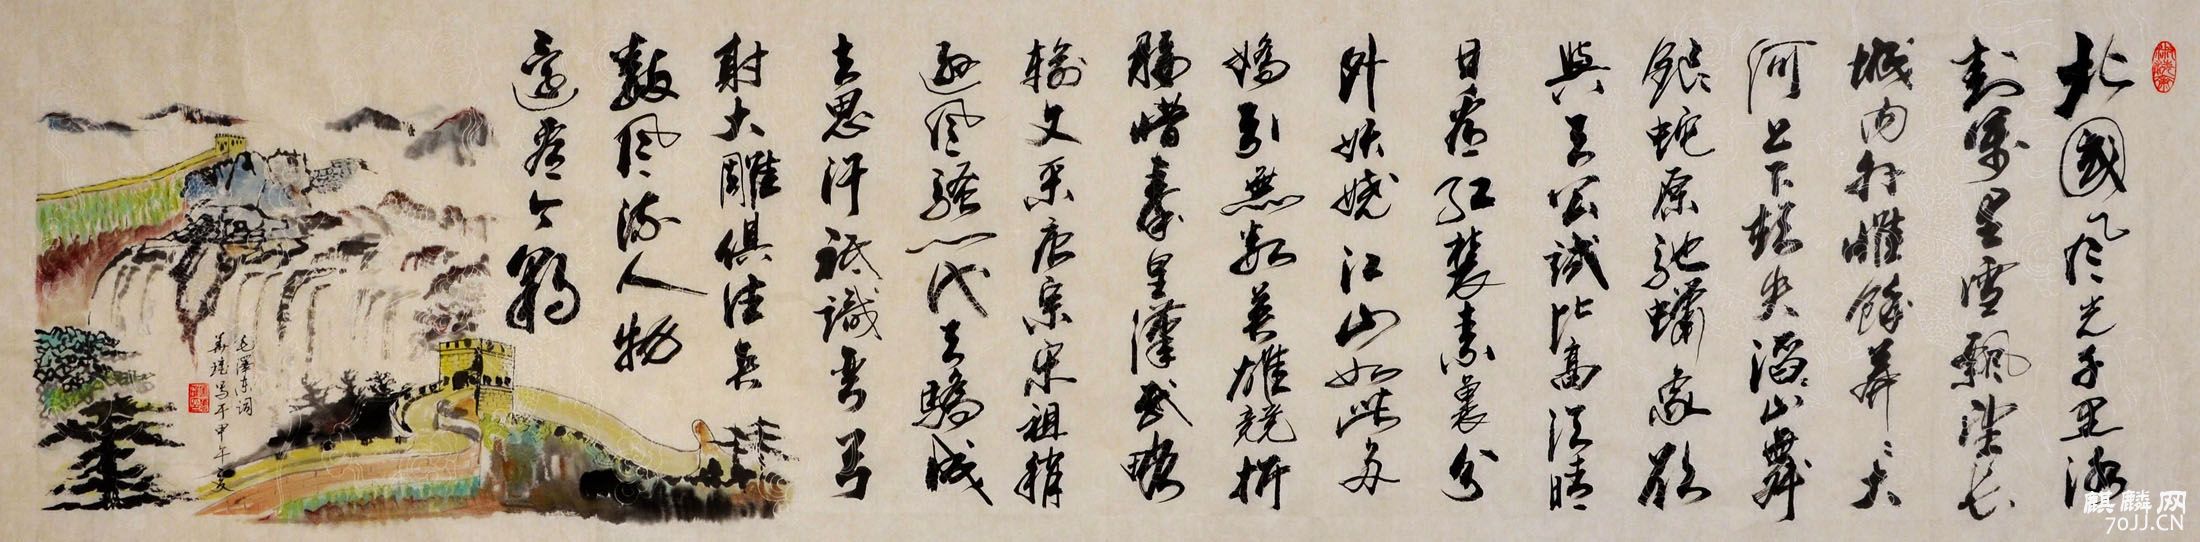 北國风光千里冰
封萬里雪飘望长
城内外惟餘莽々大
河上下顿失滔々山舞
銀蛇原驰蠟象欲
與天公試比高須晴
日看红装素裹分
外妖娆江山如此多
嬌引無数英雄競折
腰惜秦皇漢武略
输文采唐宗宋祖稍
逊风骚一代天驕成
吉思汗祗識弯弓
射大雕俱往矣
数风流人物
還看今朝
毛澤东词
写于甲午夏
麒麟网
70JJ.CN